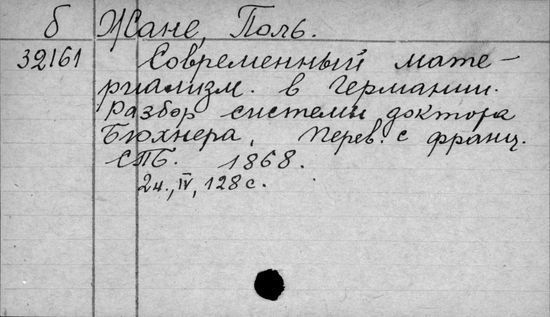 б Жане, Поль.
32161 Современный мате-
риализм. в Германии.
Разбор системы доктора
Бюхнера, Перев. с франц.
СПБ. 1868.
2н., IV, 128 с.